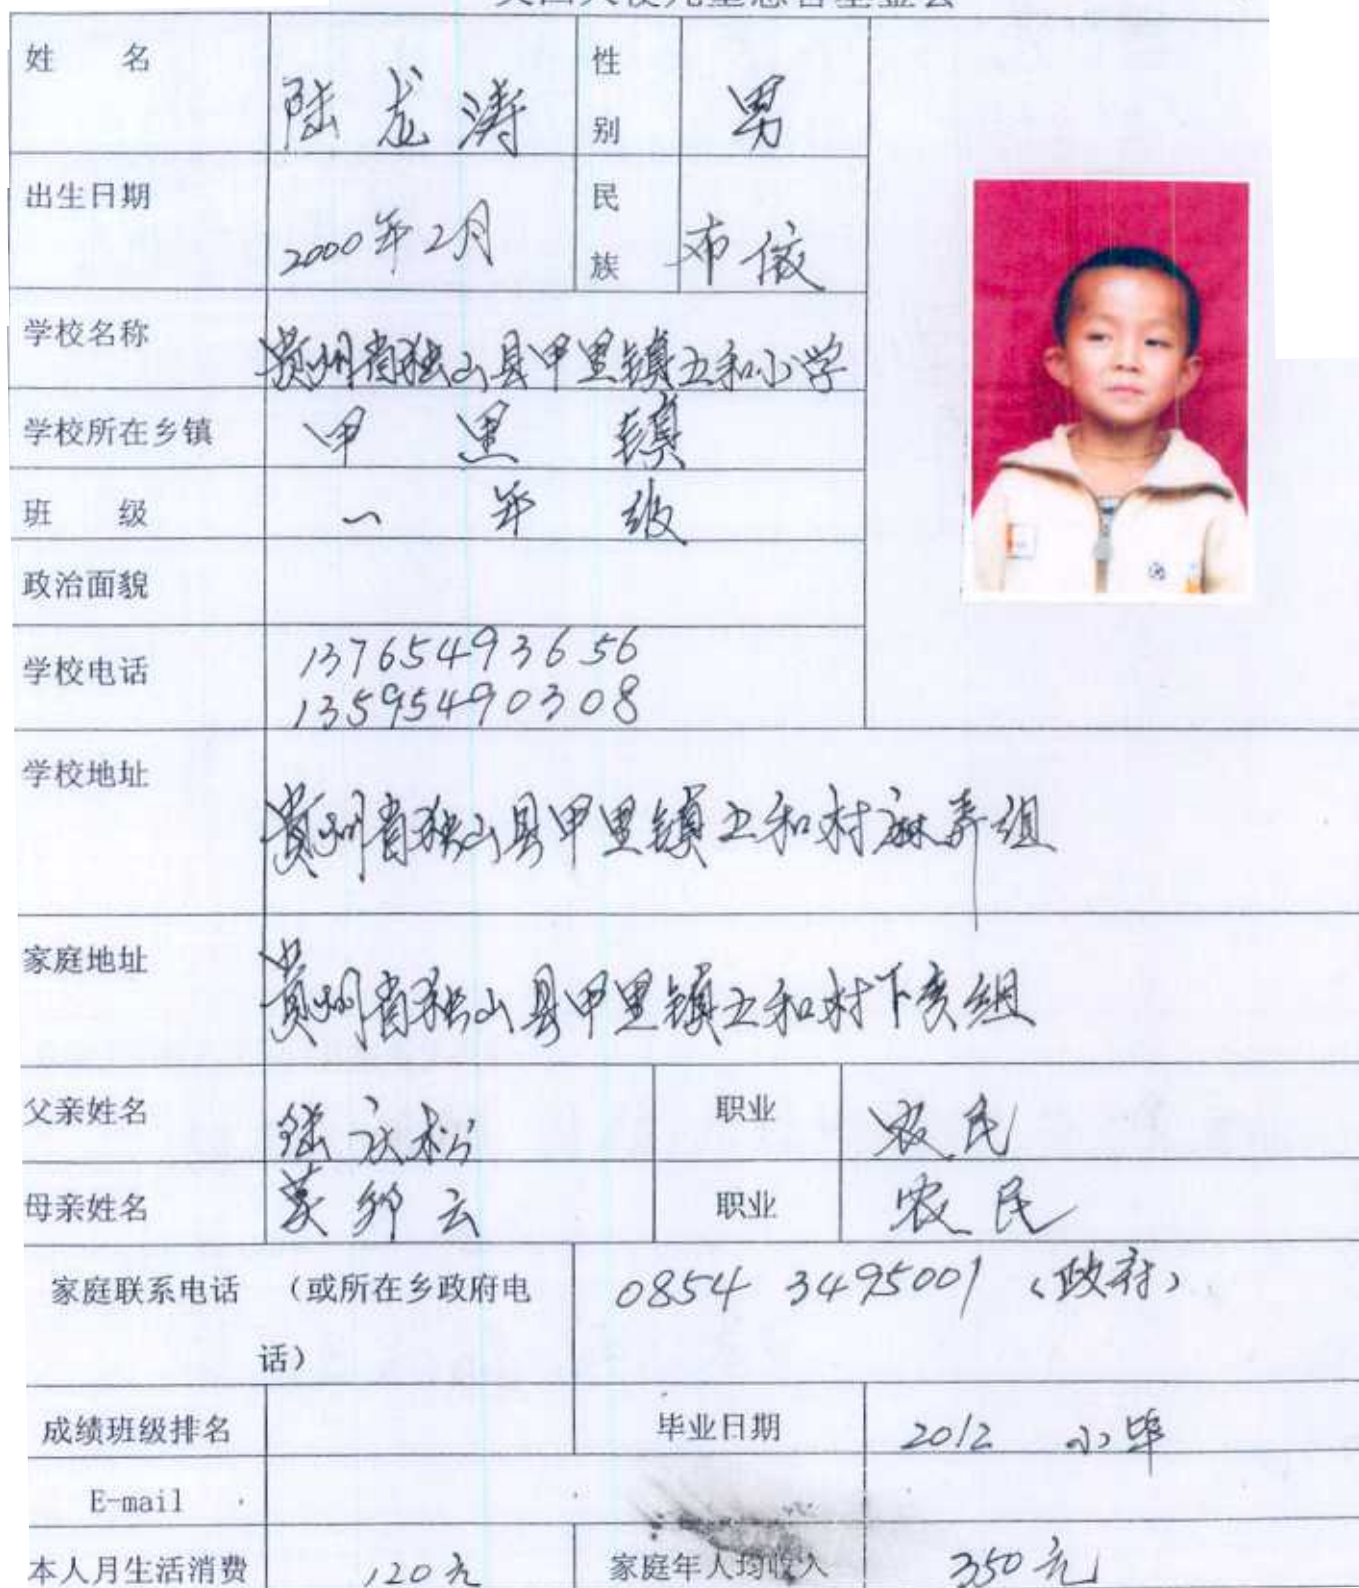 姓 名 陆龙涛 性别 男
出生日期 2000年2月 民族 布依
学校名称 贵州省独山县甲里镇五和小学
学校所在乡镇 甲里镇
班 级 一年级
政治面貌
学校电话 13765493656
13595490308
学校地址 贵州省独山县甲里镇五和村麻弄组
家庭地址 贵州省独山县甲里镇五和村下麦组
父亲姓名 职业 农民
母亲姓名 职业 农民
家庭联系电话 (或所在乡政府电 0854 3495001 (政府)
话)
成绩班级排名 毕业日期 2012 小毕
E-mail
本人月生活消费 120元 家庭年人均收入 350元